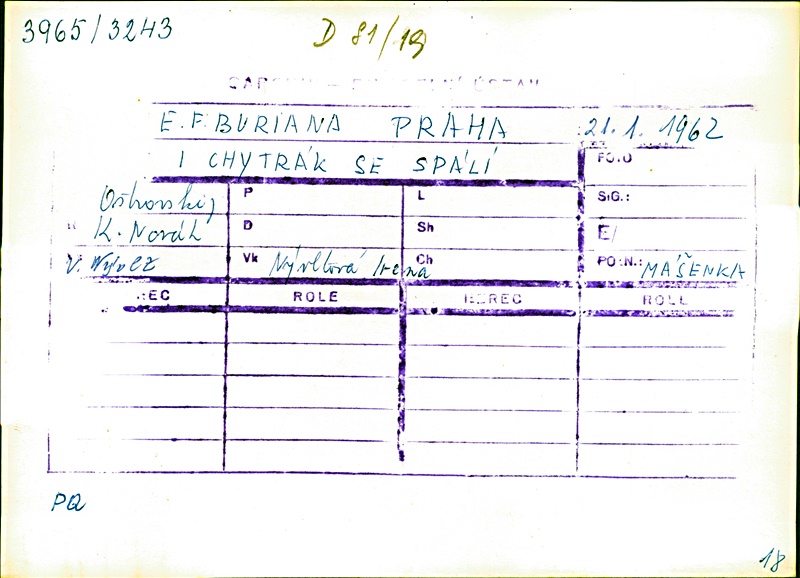 3965/3243 D 81/19
DIVADELNÍ ÚSTAV
E. F. BURIANA PRAHA 21. 1. 1962
I CHYTRÁK SE SPÁLÍ FOTO
Ostrovskij P L SIG.:
R K. Novák D Sh E/
V. Vk Nývltová Irena Ch POZN.: MÁŠENKA
HEREC ROLE HEREC ROLE
PQ
18